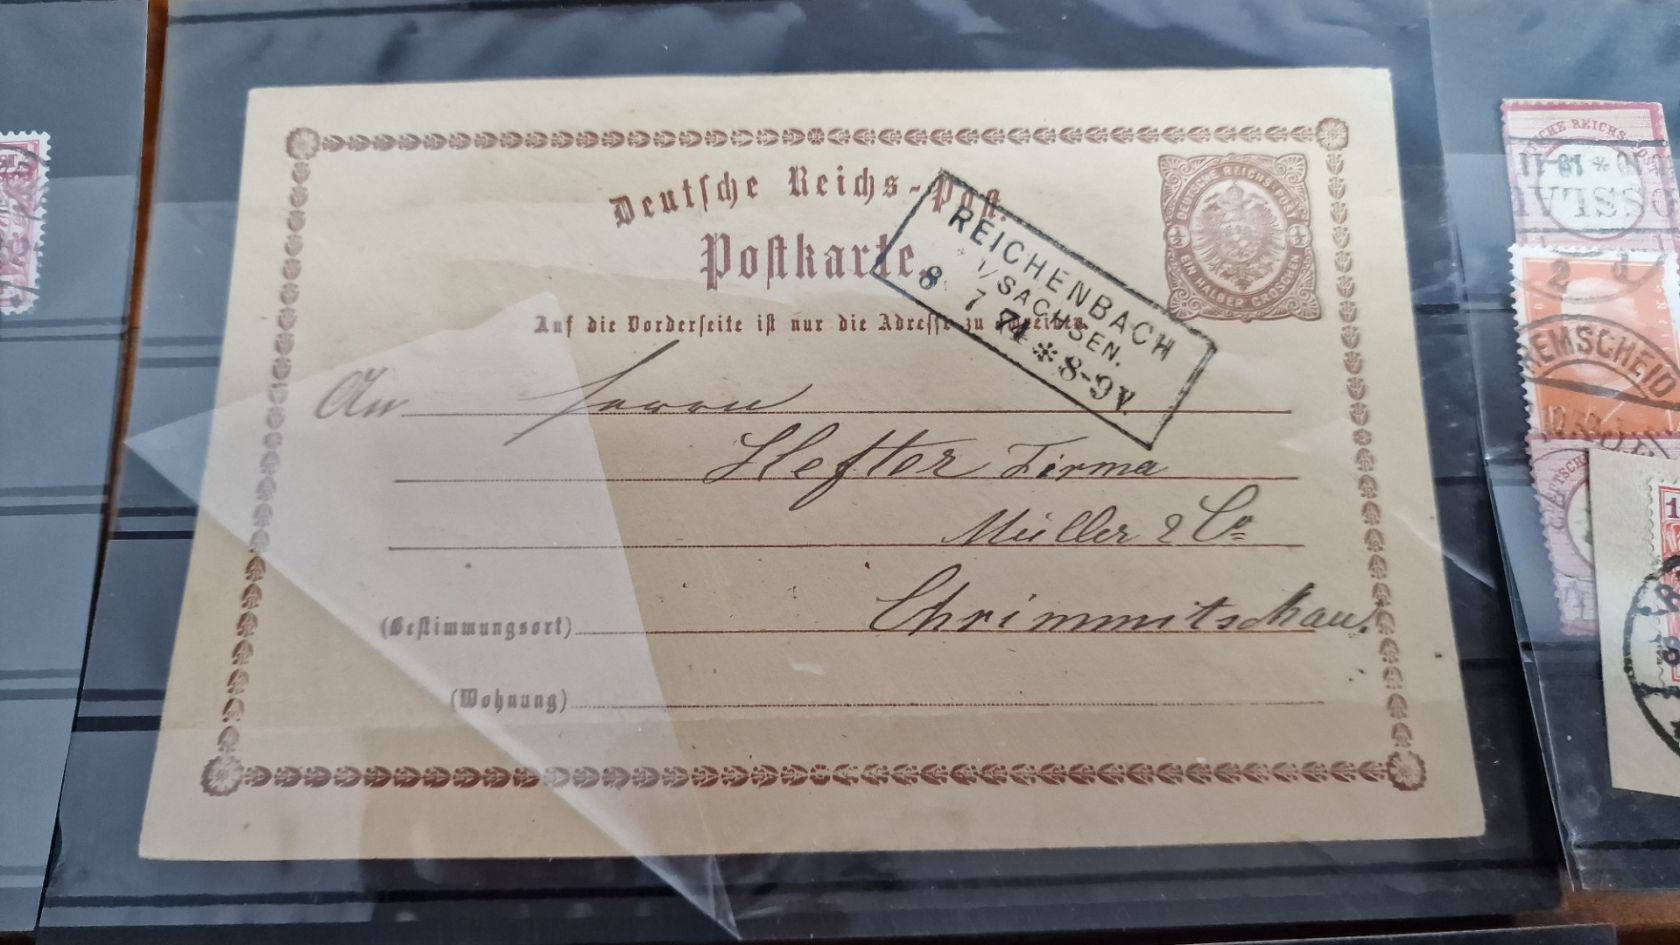 Deutsche Reichs-Post.
Postkarte.
DEUTSCHE REICHS-POST
½ ½
EIN HALBER GROSCHEN
REICHENBACH
I/SACHSEN.
8 7 74 * 8-9V.
Auf die Vorderseite ist nur die Adresse zu schreiben.
An Herrn
Hefter Firma
Müller & Co
(Bestimmungsort) Chrimmitschau.
(Wohnung)
REICHS
* 18-11
REMSCHEID